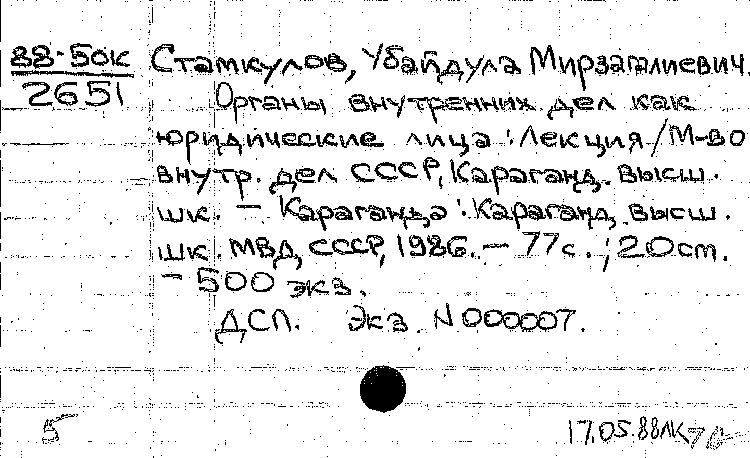 88-50к
2651
Стамкулов, Убайдула Мирзагалиевич.
Органы внутренних дел как
юридические лица : Лекция / М-во
внутр. дел СССР, Караганд. высш.
шк. – Караганда : Караганд. высш.
шк. МВД СССР, 1986. – 77 с. ; 20 см.
– 500 экз.
ДСП. Экз. N 000007.
5
17.05.88 ЛК